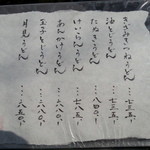 きざみきつねうどん・・・七三五、
油をとじうどん・・・七三五、
たぬきうどん・・・八四〇、
けいらんうどん・・・七八五、
あんかけうどん・・・六八〇、
玉子とじうどん・・・六八〇、
月見うどん・・・八五〇、